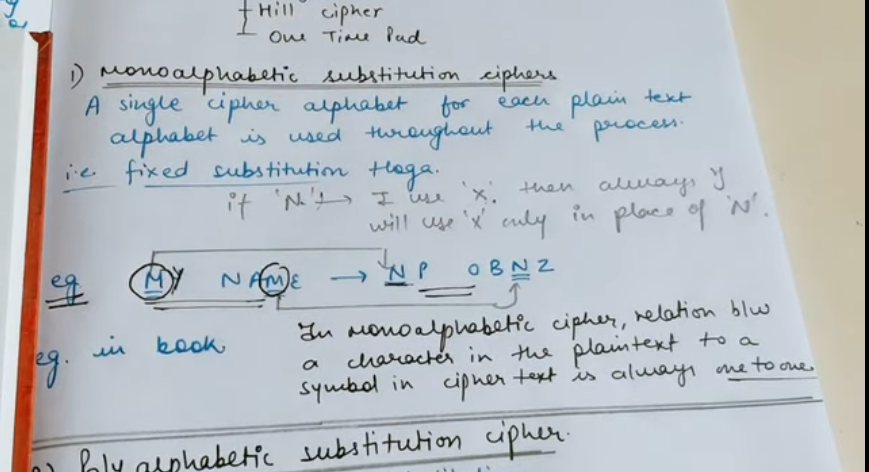 Hill cipher
One Time Pad
1) Monoalphabetic substitution ciphers
A single cipher alphabet for each plain text
alphabet is used throughout the process.
i.e. fixed substitution Hoga.
if 'N' → I use 'x', then always I
will use 'x' only in place of 'N'.
eg MY NAME → NP OBNZ
eg. in book
In monoalphabetic cipher, relation b/w
a character in the plaintext to a
symbol in cipher text is always one to one.
Poly alphabetic substitution cipher.